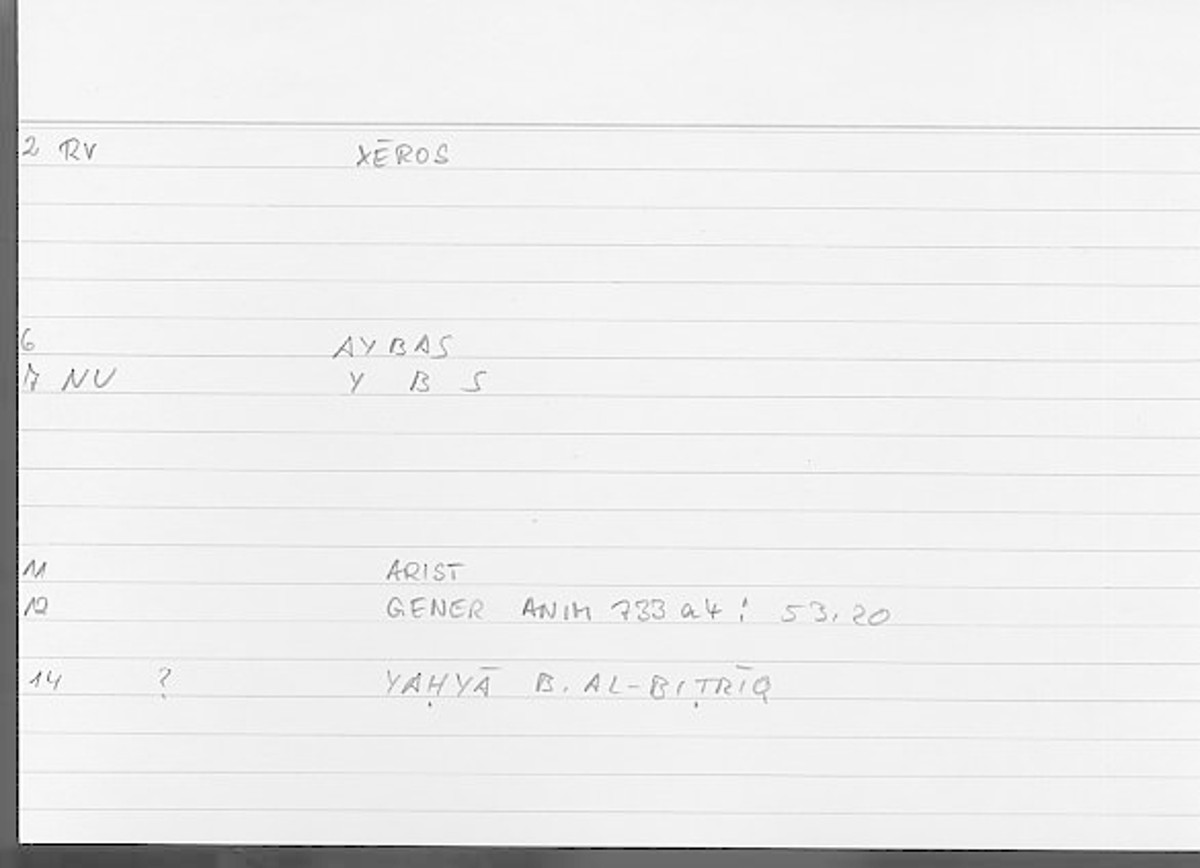 2 RV XĒROS
6 AYBAS
7 NV Y B S
11 ARIST
12 GENER ANIM 733 a 4 : 53,20
14 ? YAḤYĀ B. AL-BIṬRĪQ